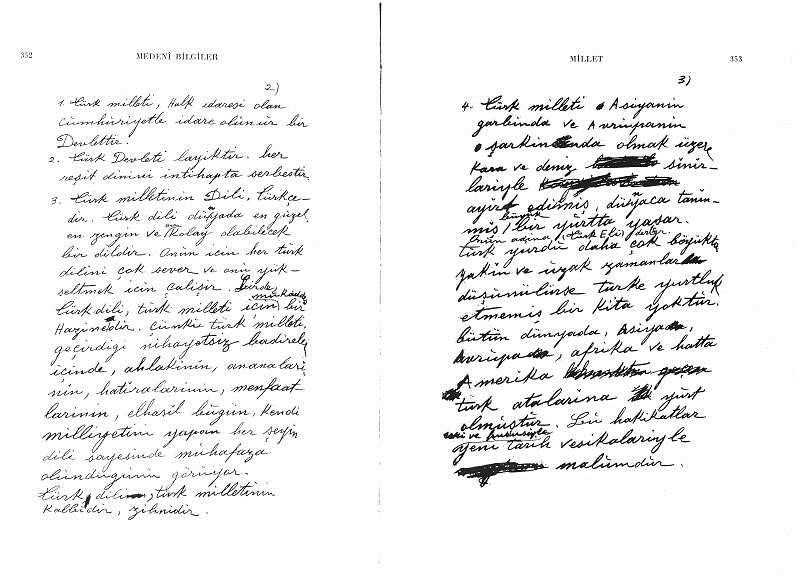 352
MEDENİ BİLGİLER
2)
1. Türk milleti, Halk idaresi olan
Cümhuriyetle idare olünür bir
Devlettir.
2. Türk Devleti layiktir. her
reşit dinini intihapta serbestir.
3. Türk milletinin Dili, türkçe-
dir. Türk dili dünyada en güzel,
en zengin ve kolay olabilecek
bir dildir. Onün için her türk
dilini çok sever ve onü yük-
seltmek için çalişir. Birde,
Türk dili, türk milleti için mukaddes bir
Hazinedir. Çünkü türk milleti,
geçirdiği nihayetsiz badireler
içinde, ahlakinin, ananalari-
nin, hatiralarinin, menfaat-
larinin, elhasil bügün, kendi
milliyetini yapan her şeyin
dili sayesinde mühafaza
olündüğünü görüyor.
Türk dili, türk milletinin
Kalbidir, zihnidir.
MİLLET
353
3)
4. Türk milleti Asiyanin
garbinda ve Avrüpanin
şarkinda olmak üzere
kara ve deniz sinir-
lariyle
ayirt edilmiş, dünyaca tanin-
miş büyük bir yürtta yaşar.
Onün adina (Türk Eli) derler.
türk yurdu daha çok büyüktü.
yakin ve üzak zamanlar
düşünülürse türke yurtluk
etmemiş bir kita yoktür.
bütün dünyada, Asiya,
Avrüpa, afrika ve hatta
Amerika
türk atalarina yürt
olmüştür. Bü hakikatlar
eski ve hususiyle
yeni tarih vesikalariyle
malümdür.